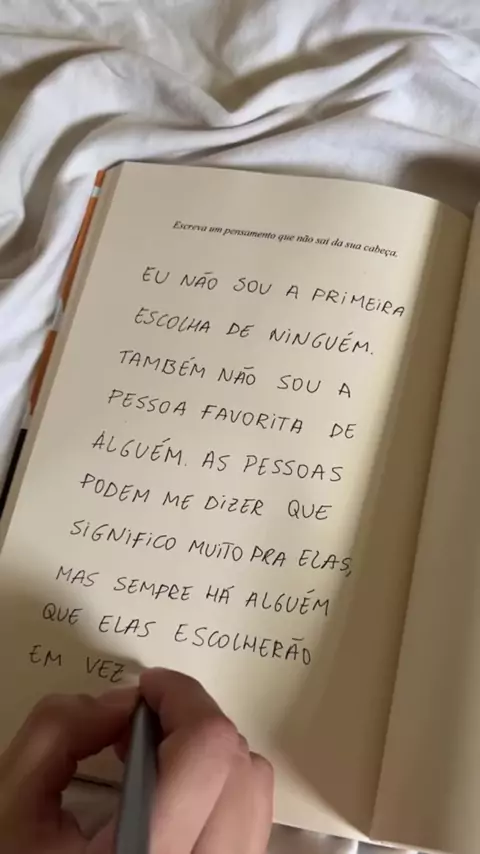 Escreva um pensamento que não sai da sua cabeça.
EU NÃO SOU A PRIMEIRA
ESCOLHA DE NINGUÉM.
TAMBÉM NÃO SOU A
PESSOA FAVORITA DE
ALGUÉM. AS PESSOAS
PODEM ME DIZER QUE
SIGNIFICO MUITO PRA ELAS,
MAS SEMPRE HÁ ALGUÉM
QUE ELAS ESCOLHERÃO
EM VEZ